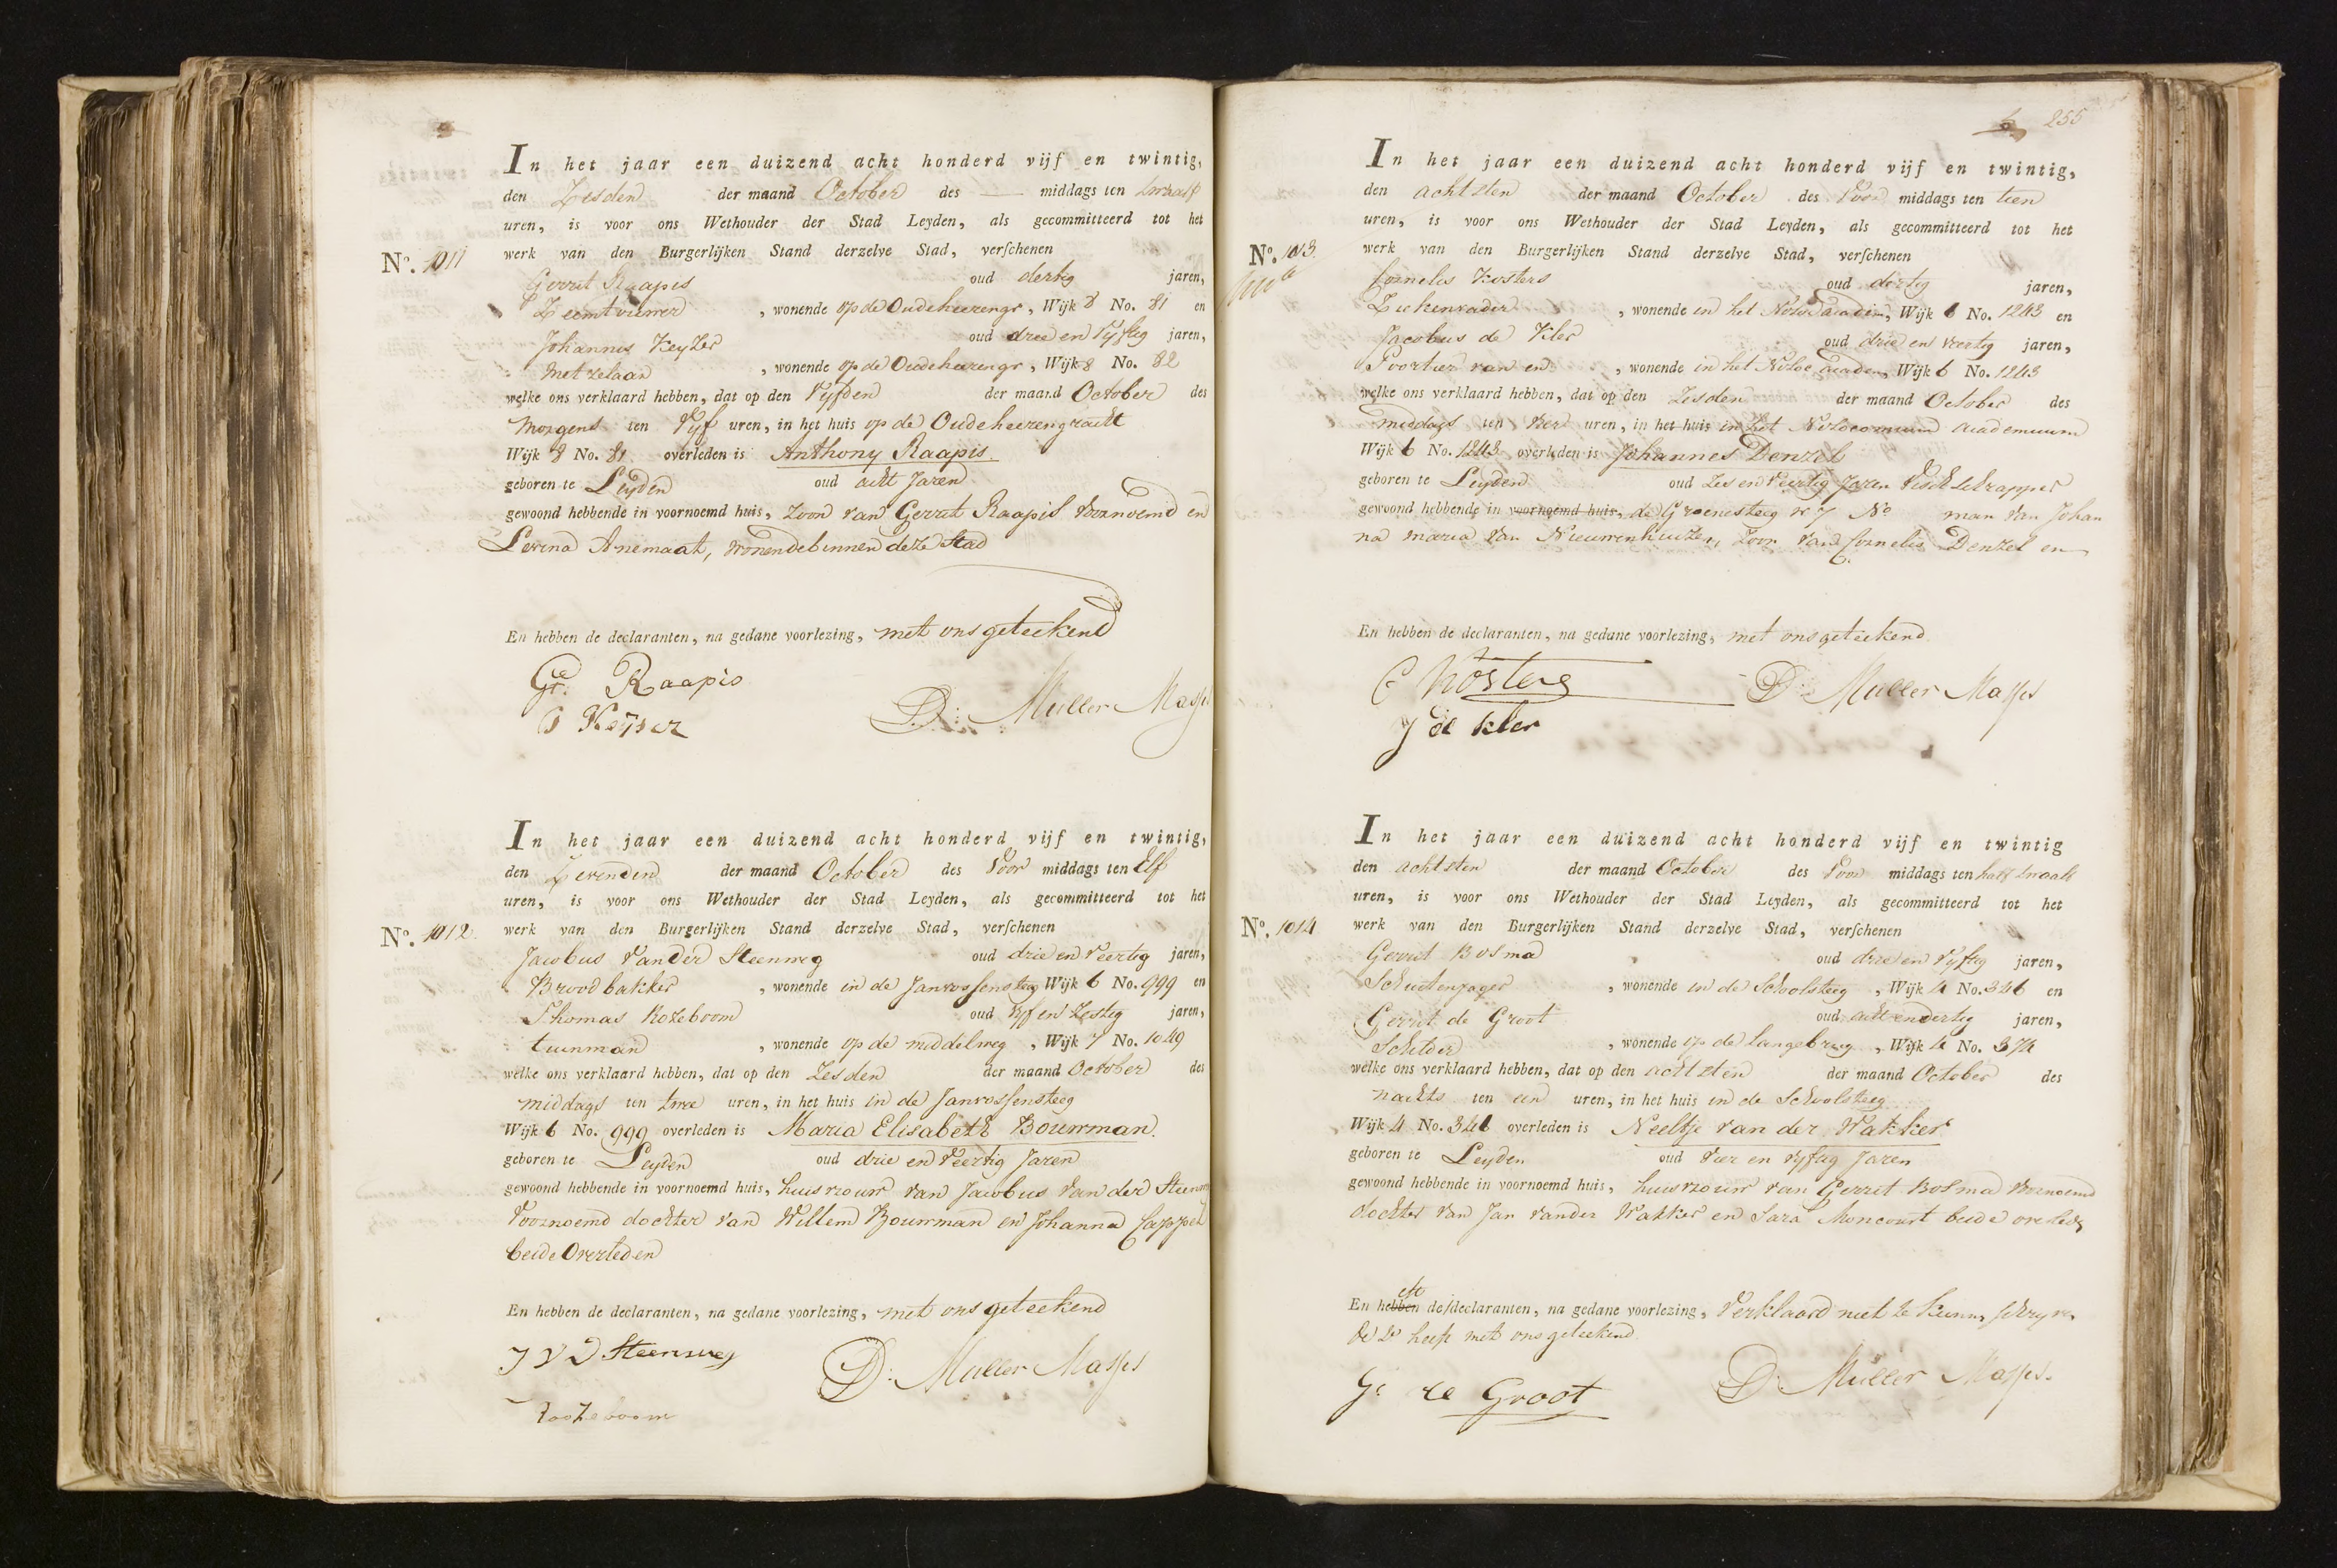 In het jaar een duizend acht honderd vijf en twintig,
den Zesden der maand October des — middags ten twaalf
uren, is voor ons Wethouder der Stad Leyden, als gecommitteerd tot het
No. 1011 werk van den Burgerlijken Stand derzelve Stad, verschenen
Gerrit Raapis oud dertig jaren,
Zeemtouwer, wonende op de Oudeheerengr, Wijk 8 No. 81 en
Johannes Keyzer oud drie en Vyftig jaren,
Metzelaar, wonende op de Oudeheerengr, Wijk 8 No. 82
welke ons verklaard hebben, dat op den Vyfden der maand October des
Morgens ten Vyf uren, in het huis op de Oudeheerengracht
Wijk 8 No. 81 overleden is Anthony Raapis
geboren te Leyden oud acht Jaren
gewoond hebbende in voornoemd huis, Zoon van Gerrit Raapis Voornoemd en
Levina Anemaat, wonende binnen deze Stad
En hebben de declaranten, na gedane voorlezing, met ons geteekend
Gt. Raapis
J Keyser D: Muller Massis
In het jaar een duizend acht honderd vijf en twintig,
den Zevenden der maand October des Voor middags ten Elf
uren, is voor ons Wethouder der Stad Leyden, als gecommitteerd tot het
No. 1012 werk van den Burgerlijken Stand derzelve Stad, verschenen
Jacobus Vander Steenweg oud drie en Veertig jaren,
Broodbakker, wonende in de Janvossensteeg Wijk 6 No. 999 en
Thomas Rozeboom oud Vyf en Zestig jaren,
tuinman, wonende op de middelweg, Wijk 7 No. 1049
welke ons verklaard hebben, dat op den Zesden der maand October des
middags ten twee uren, in het huis in de Janvossensteeg
Wijk 6 No. 999 overleden is Maria Elisabeth Bouwman
geboren te Leyden oud drie en Veertig Jaren
gewoond hebbende in voornoemd huis, huisvrouw van Jacobus Van der Steenweg
Voornoemd dochter van Willem Bouwman en Johanna Cappel
beide Overleden
En hebben de declaranten, na gedane voorlezing, met ons geteekend
J V D Steenweg D: Muller Massis
Roozeboom
255
In het jaar een duizend acht honderd vijf en twintig,
den achtsten der maand October des Voor middags ten tien
uren, is voor ons Wethouder der Stad Leyden, als gecommitteerd tot het
No. 1013 werk van den Burgerlijken Stand derzelve Stad, verschenen
Cornelis Kosters oud dertig jaren,
Ziekenvader, wonende in het Wijk 6 No. 1243 en
Jacobus de Kler oud drie en Veertig jaren,
Poortier van en, wonende in het Wijk 6 No. 1243
welke ons verklaard hebben, dat op den Zesden der maand October des
middags ten Vier uren, in het huis in het Nosocomium academicum
Wijk 6 No. 1243 overleden is Johannes Denzel
geboren te Leyden oud Zes en Veertig Jaren
gewoond hebbende in voornoemd huis, de Groenesteeg W 7 No man van Johan
na maria Van Nieuwenhuizen, Zoon van Cornelis Denzel en
En hebben de declaranten, na gedane voorlezing, met ons geteekend
C Kosters D: Muller Massis
J de Kler
In het jaar een duizend acht honderd vijf en twintig
den achtsten der maand October des Voor middags ten half twaalf
uren, is voor ons Wethouder der Stad Leyden, als gecommitteerd tot het
No. 1014 werk van den Burgerlijken Stand derzelve Stad, verschenen
Gerrit Bosma oud drie en Vyftig jaren,
Schuitenjager, wonende in de Schoolsteeg, Wijk 4 No. 346 en
Gerrit de Groot oud acht en dertig jaren,
Schilder, wonende op de Langebrug, Wijk 4 No. 374
welke ons verklaard hebben, dat op den achtsten der maand October des
nachts ten een uren, in het huis in de Schoolsteeg
Wijk 4 No. 346 overleden is Neeltje van der Wakker
geboren te Leyden oud Vier en vyftig Jaren
gewoond hebbende in voornoemd huis, huisvrouw van Gerrit Bosma Voornoemd
dochter van Jan vander Wakker en Sara Moncourt beide overleden
En hebben de declaranten, na gedane voorlezing, Verklaard niet te kunnen schryven
de 2e heeft met ons geteekend
Gt de Groot D: Muller Massis